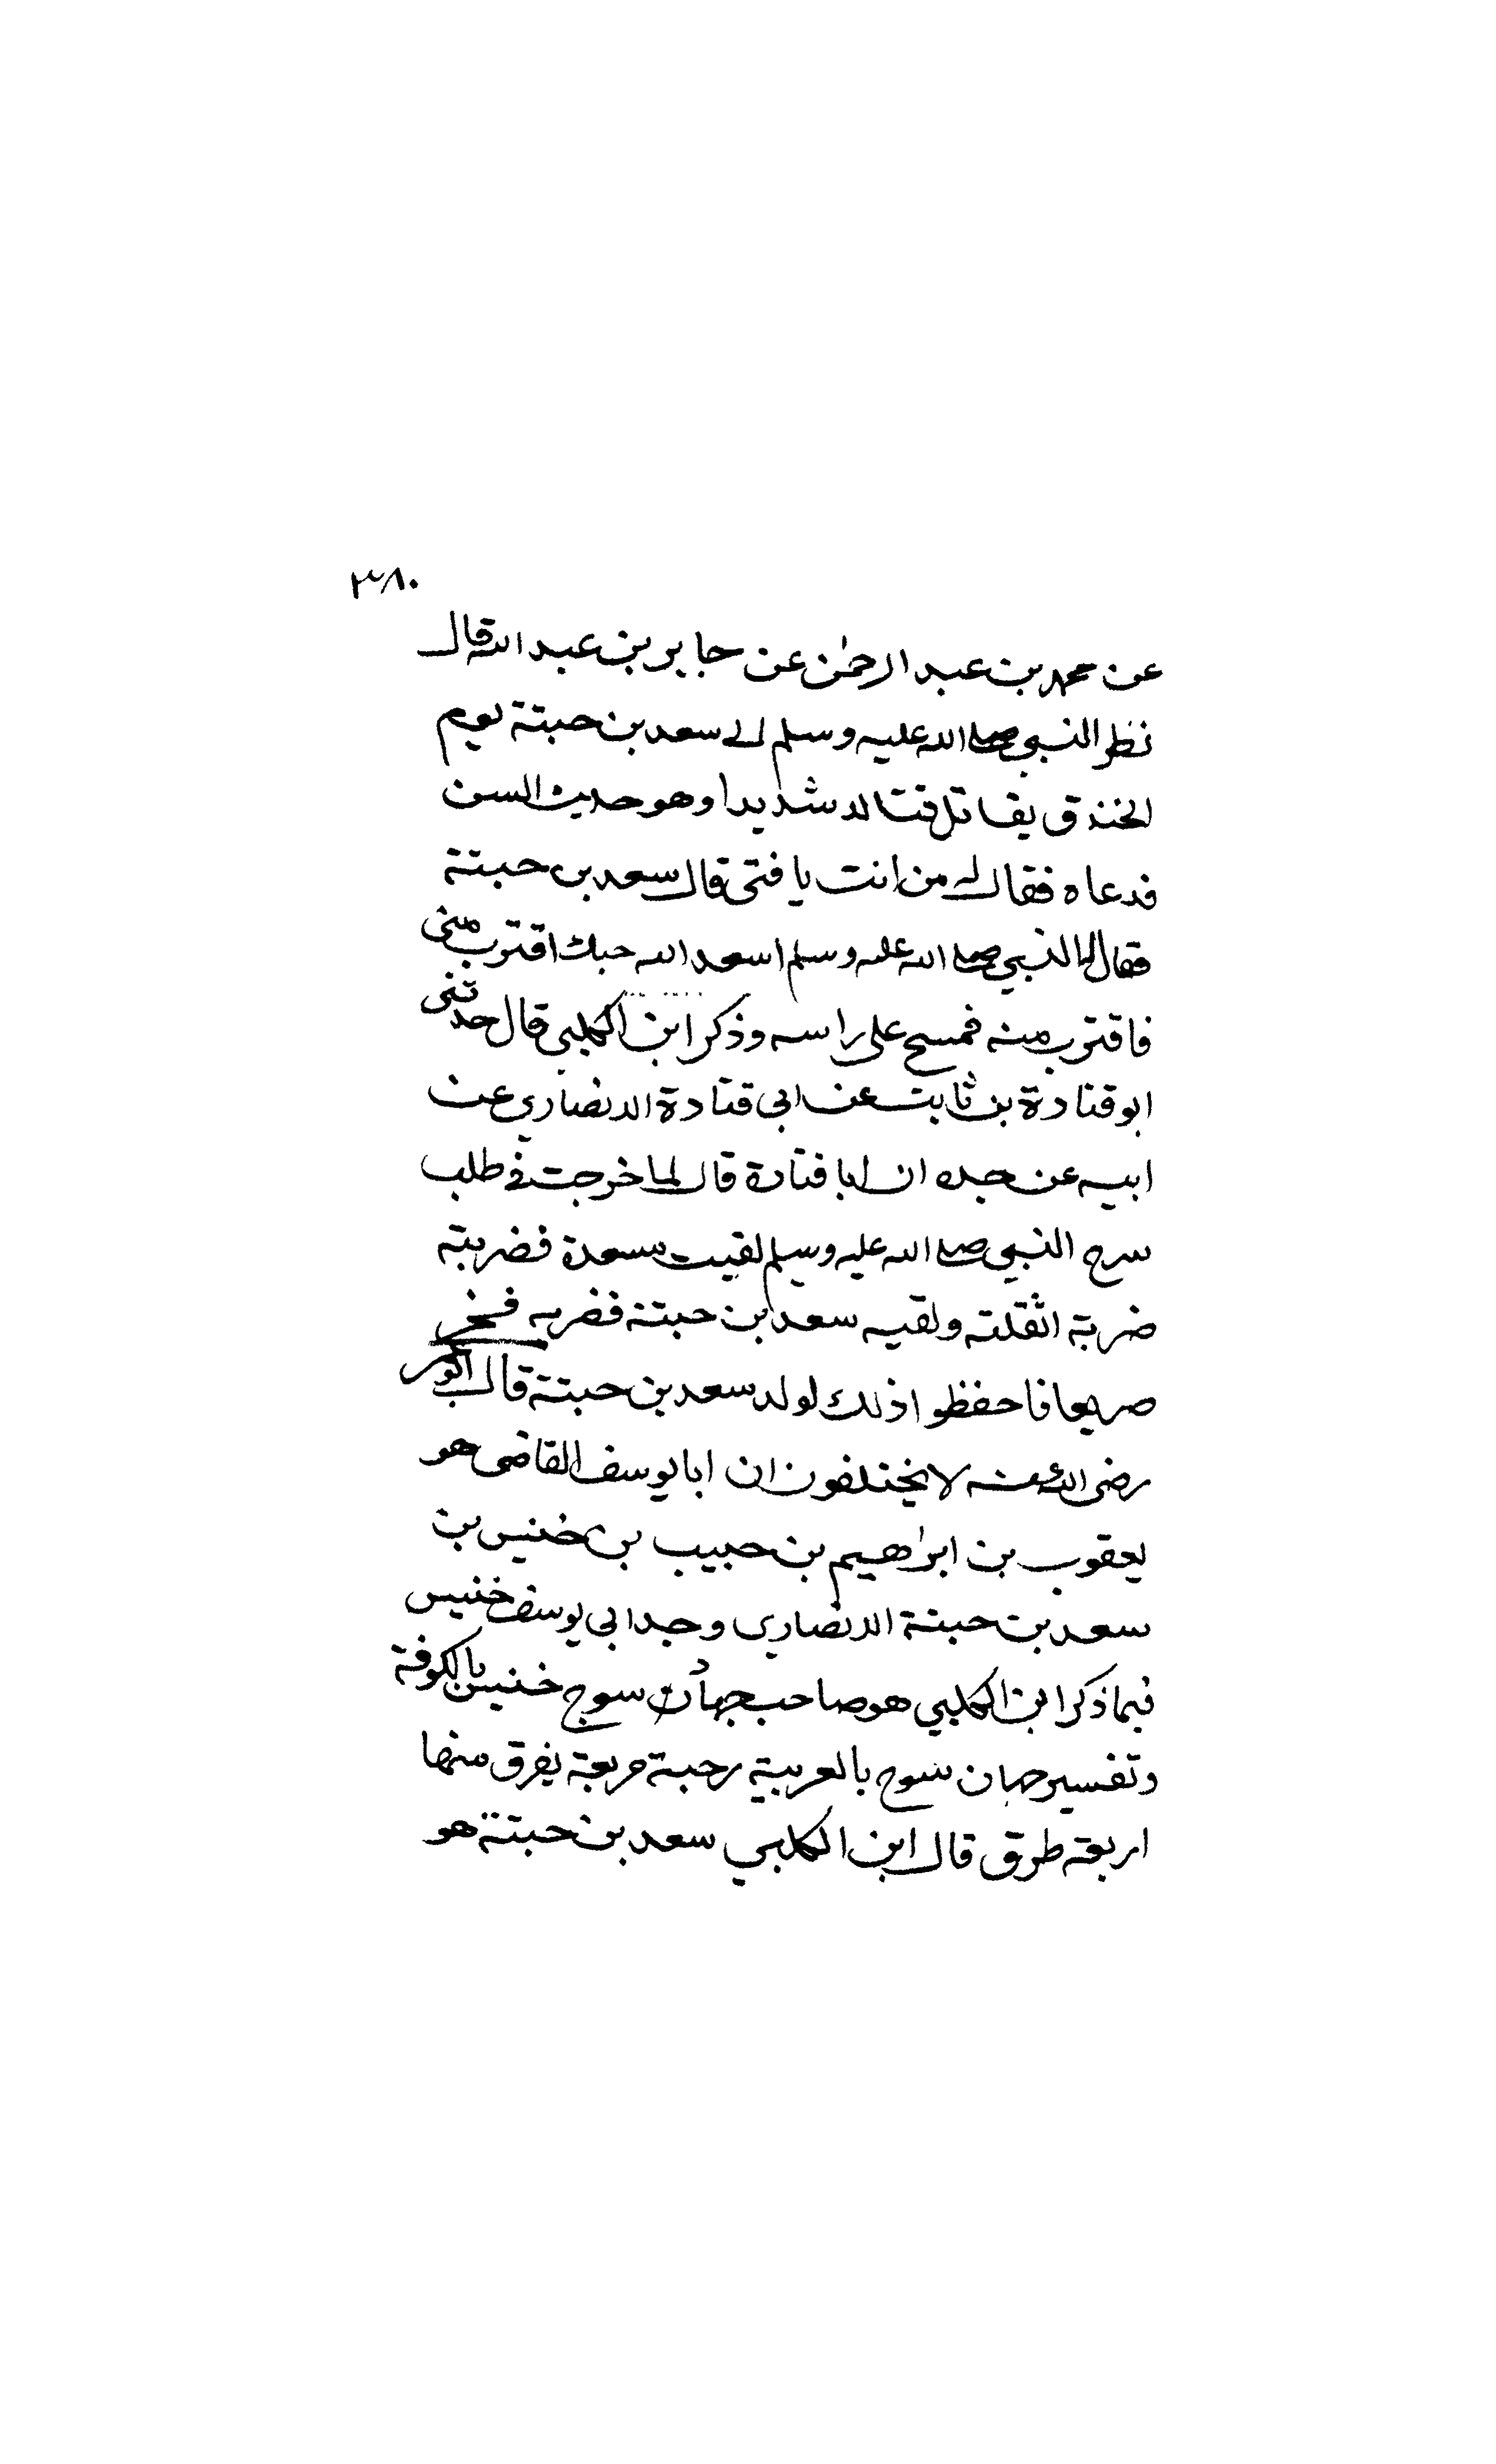 ٣٨٠
عن محمد بن عبد الرحمٰن عن جابر بن عبد الله قال
نظر النبي صلى الله عليه وسلم الى سعد بن حبتة يوم
الخندق يقاتل قتالا شديدا وهو حديث السن
فدعاه فقال له من انت يا فتى قال سعد بن حبتة
فقال له النبي صلى الله عليه وسلم اسعد الله جدك اقترب منى
فاقترب منه فمسح على راسه وذكر ابن الكلبي قال حدثنى
ابو قتادة بن ثابت عن ابى قتادة الانصاري عن
ابيه عن جده ان ابا قتادة قال لما خرجت في طلب
سرح النبي صلى الله عليه وسلم لقيت مسعدة فضربته
ضربة اثقلته ولقيه سعد بن حبتة فضربه فخر
صريعا فاحفظوا ذلك لولد سعد بن حبتة قال ابو عمر
رضى الله عنه لا يختلفون ان ابا يوسف القاضى هو
يعقوب بن ابراهيم بن حبيب بن خنيس بن
سعد بن حبتة الانصاري وجد ابى يوسف خنيس
فيما ذكر ابن الكلبي هو صاحب جهار سوج خنيس بالكوفة
وتفسير جهان سوج بالعربية رحبة مربعة يفرق منها
اربعة طرق قال ابن الكلبي سعد بن حبتة هو